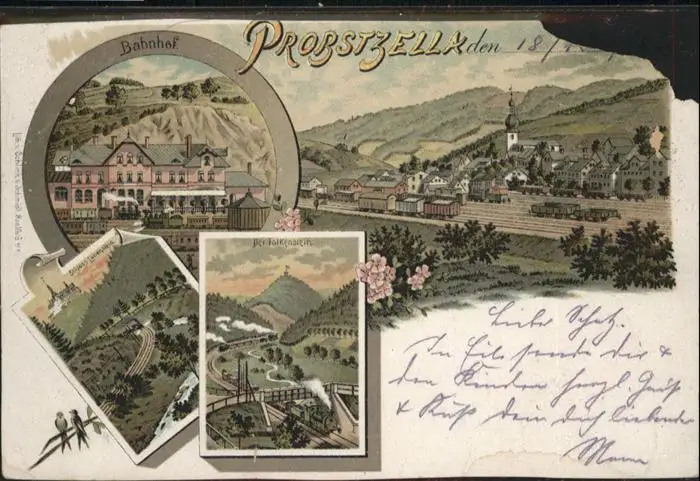 Bahnhof.
PROBSTZELLA den 18/
Der Falkenstein.
Lieber Schatz.
In Eile sende dir &
den Kindern herzl Gruß
& Kuß dein dich liebender
Mann